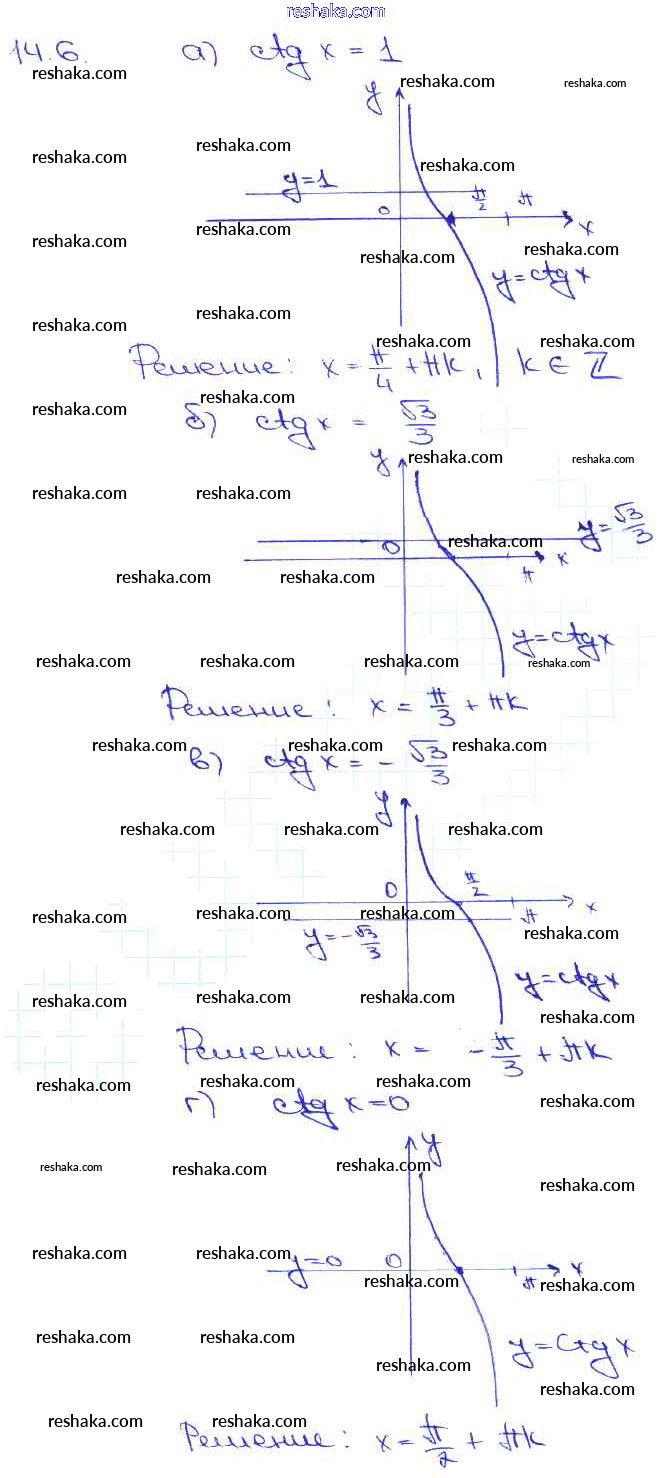 reshaka.com
14.6. а) ctg x = 1
reshaka.com reshaka.com reshaka.com
y
reshaka.com reshaka.com reshaka.com
y=1 π/2 π
0 x
reshaka.com reshaka.com reshaka.com reshaka.com
y=ctg x
reshaka.com reshaka.com
reshaka.com reshaka.com reshaka.com
Решение: x = π/4 + πk, k ∈ ℤ
reshaka.com reshaka.com
б) ctg x = √3/3
y reshaka.com reshaka.com
reshaka.com reshaka.com
y=√3/3
0 reshaka.com
π x
reshaka.com reshaka.com
y=ctg x
reshaka.com reshaka.com reshaka.com reshaka.com
Решение: x = π/3 + πk
reshaka.com reshaka.com reshaka.com
в) ctg x = -√3/3
y
reshaka.com reshaka.com reshaka.com
0 π/2 x
reshaka.com reshaka.com reshaka.com π
y=-√3/3 reshaka.com
y=ctg x
reshaka.com reshaka.com reshaka.com
reshaka.com
Решение: x = -π/3 + πk
reshaka.com reshaka.com reshaka.com
г) ctg x = 0 reshaka.com
y
reshaka.com reshaka.com reshaka.com
reshaka.com
reshaka.com reshaka.com
y=0 0 x
reshaka.com π reshaka.com
reshaka.com reshaka.com
y=ctg x
reshaka.com
reshaka.com
reshaka.com reshaka.com reshaka.com
Решение: x = π/2 + πk